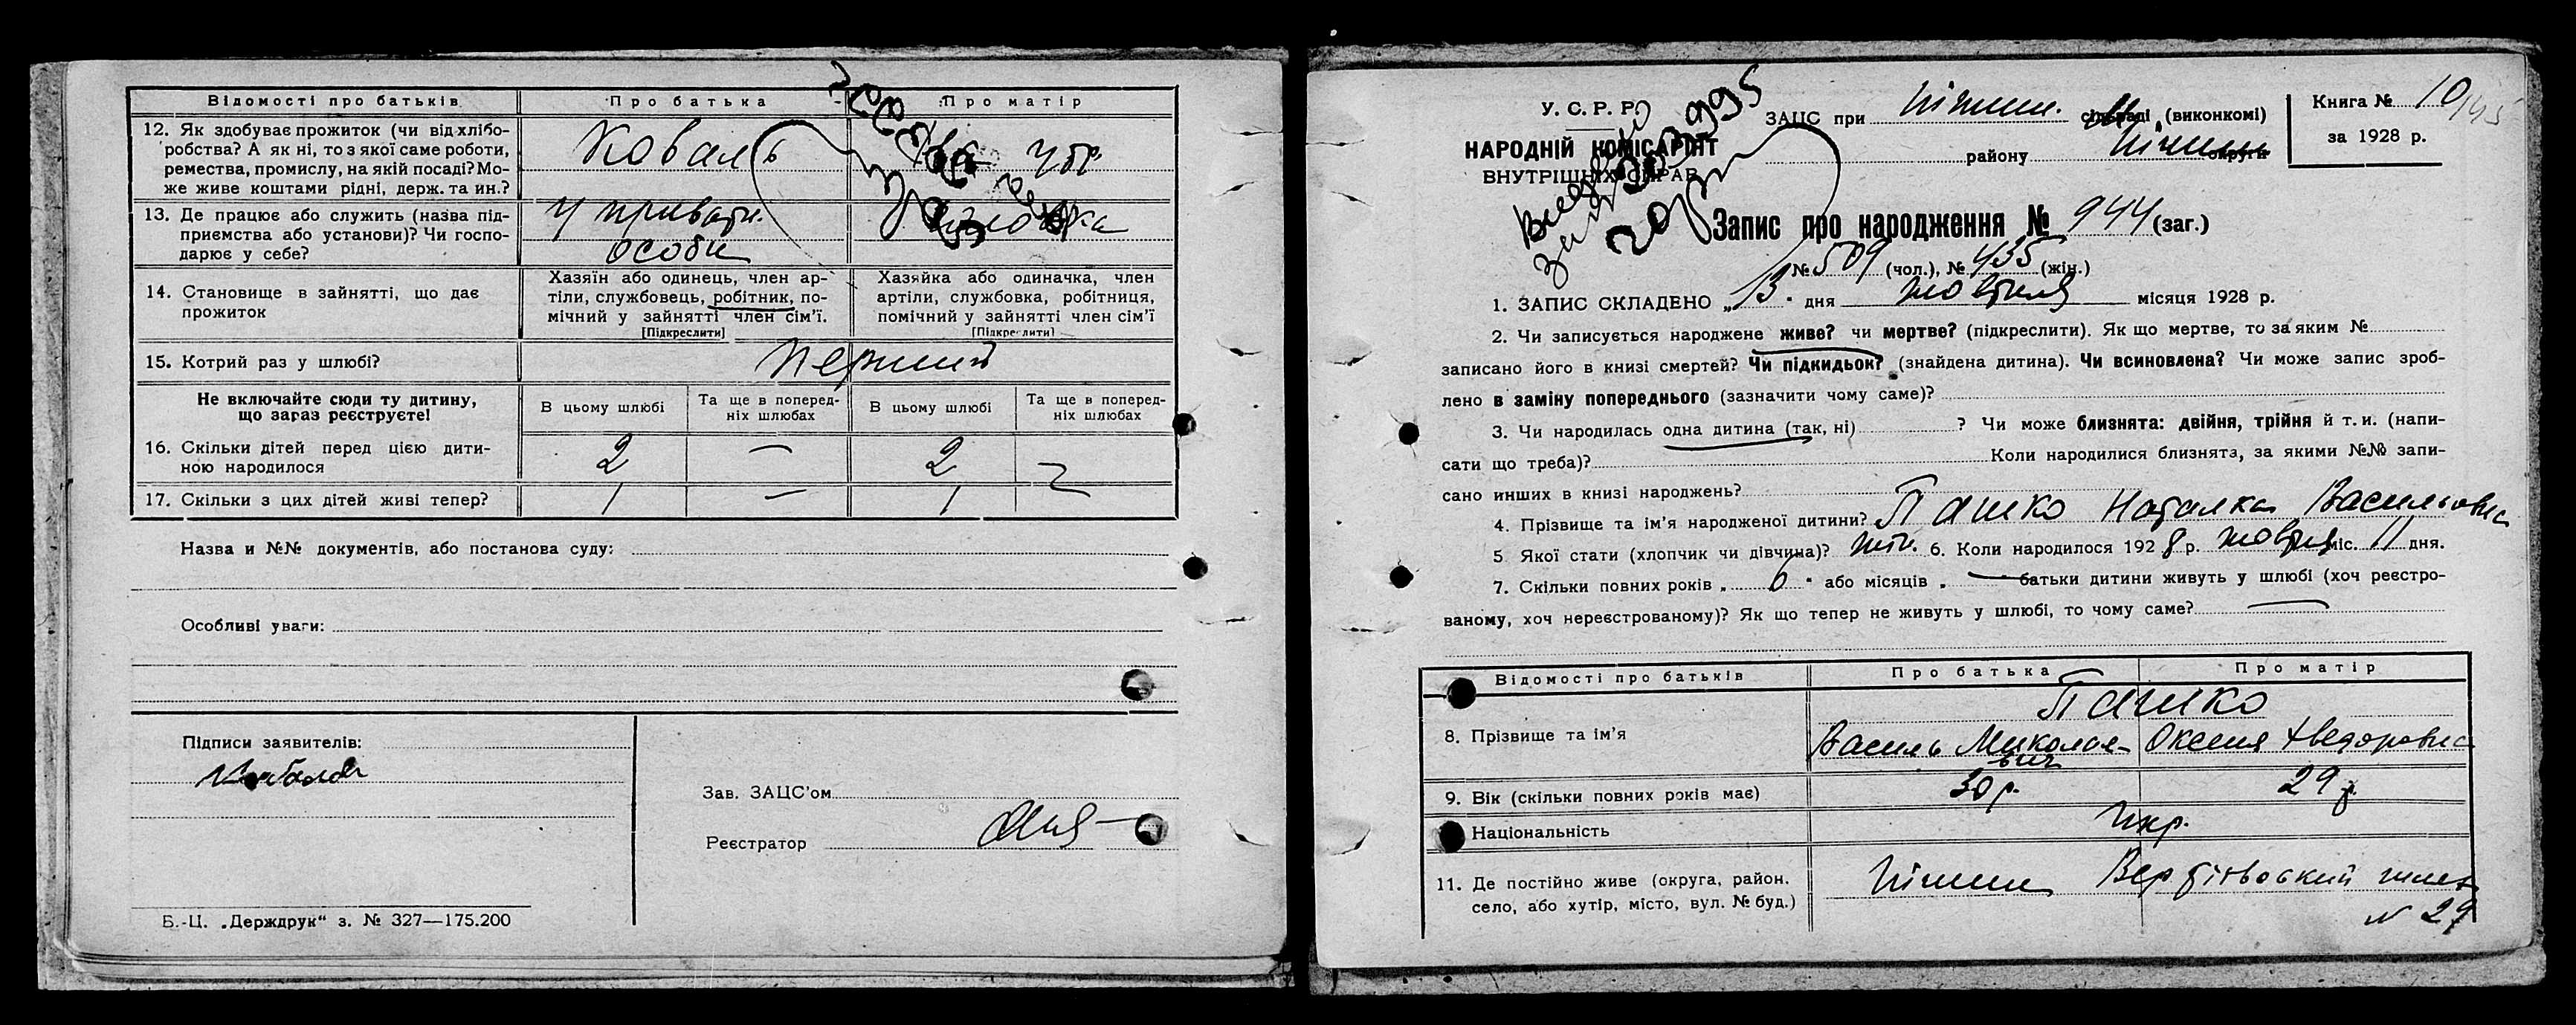 Відомості про батьків Про батька Про матір
12. Як здобуває прожиток (чи від хлібо-
робства? А як ні, то з якої саме роботи,
ремества, промислу, на якій посаді? Мо-
же живе коштами рідні, держ. та ин.?
Коваль
13. Де працює або служить (назва під-
приємства або установи)? Чи госпо-
дарює у себе?
у приватн.
особи
14. Становище в зайнятті, що дає
прожиток
Хазяїн або одинець, член ар-
тіли, службовець, робітник, по-
мічний у зайнятті член сім'ї.
[Підкреслити]
Хазяйка або одиначка, член
артіли, службовка, робітниця,
помічний у зайнятті член сім'ї
[Підкреслити]
15. Котрий раз у шлюбі? перший
Не включайте сюди ту дитину,
що зараз реєструєте!
В цьому шлюбі
Та ще в поперед-
ніх шлюбах
В цьому шлюбі
Та ще в поперед-
ніх шлюбах
16. Скільки дітей перед цією дити-
ною народилося
2 — 2
17. Скільки з цих дітей живі тепер? 1 — 1
Назва и №№ документів, або постанова суду:
Особливі уваги:
Підписи заявителів:
Зав. ЗАЦС'ом
Реєстратор
Б.-Ц. „Держдрук“ з. № 327—175.200
У. С. Р. Р.
НАРОДНІЙ КОМІСАРІЯТ
ВНУТРІШНІХ СПРАВ
ЗАЦС при Ніжин. сільраді (виконкомі)
району Ніжин округи
Книга № 10
за 1928 р.
Запис про народження № 944 (заг.)
№ 509 (чол.), № 435 (жін.)
1. ЗАПИС СКЛАДЕНО „13“ дня жовтня місяця 1928 р.
2. Чи записується народжене живе? чи мертве? (підкреслити). Як що мертве, то за яким №
записано його в книзі смертей? Чи підкидьок? (знайдена дитина). Чи всиновлена? Чи може запис зроб-
лено в заміну попереднього (зазначити чому саме)?
3. Чи народилась одна дитина (так, ні) ? Чи може близнята: двійня, трійня й т. и. (напи-
сати що треба)? Коли народилися близнята, за якими №№ запи-
сано инших в книзі народжень?
4. Прізвище та ім'я народженої дитини? Пашко Наталка Васильовна
5 Якої стати (хлопчик чи дівчина)? жін. 6. Коли народилося 1928 р. жовтня міс. 11 дня.
7. Скільки повних років „ 6 “ або місяців „ — батьки дитини живуть у шлюбі (хоч реєстро-
ваному, хоч нереєстрованому)? Як що тепер не живуть у шлюбі, то чому саме? —
Відомості про батьків Про батька Про матір
Пашко
8. Прізвище та ім'я Василь Миколає- Оксеня Хведоровна
вич
9. Вік (скільки повних років має) 30 р. 29 р.
Національність Укр.
11. Де постійно живе (округа, район.
село, або хутір, місто, вул. № буд.)
Ніжин
№ 29